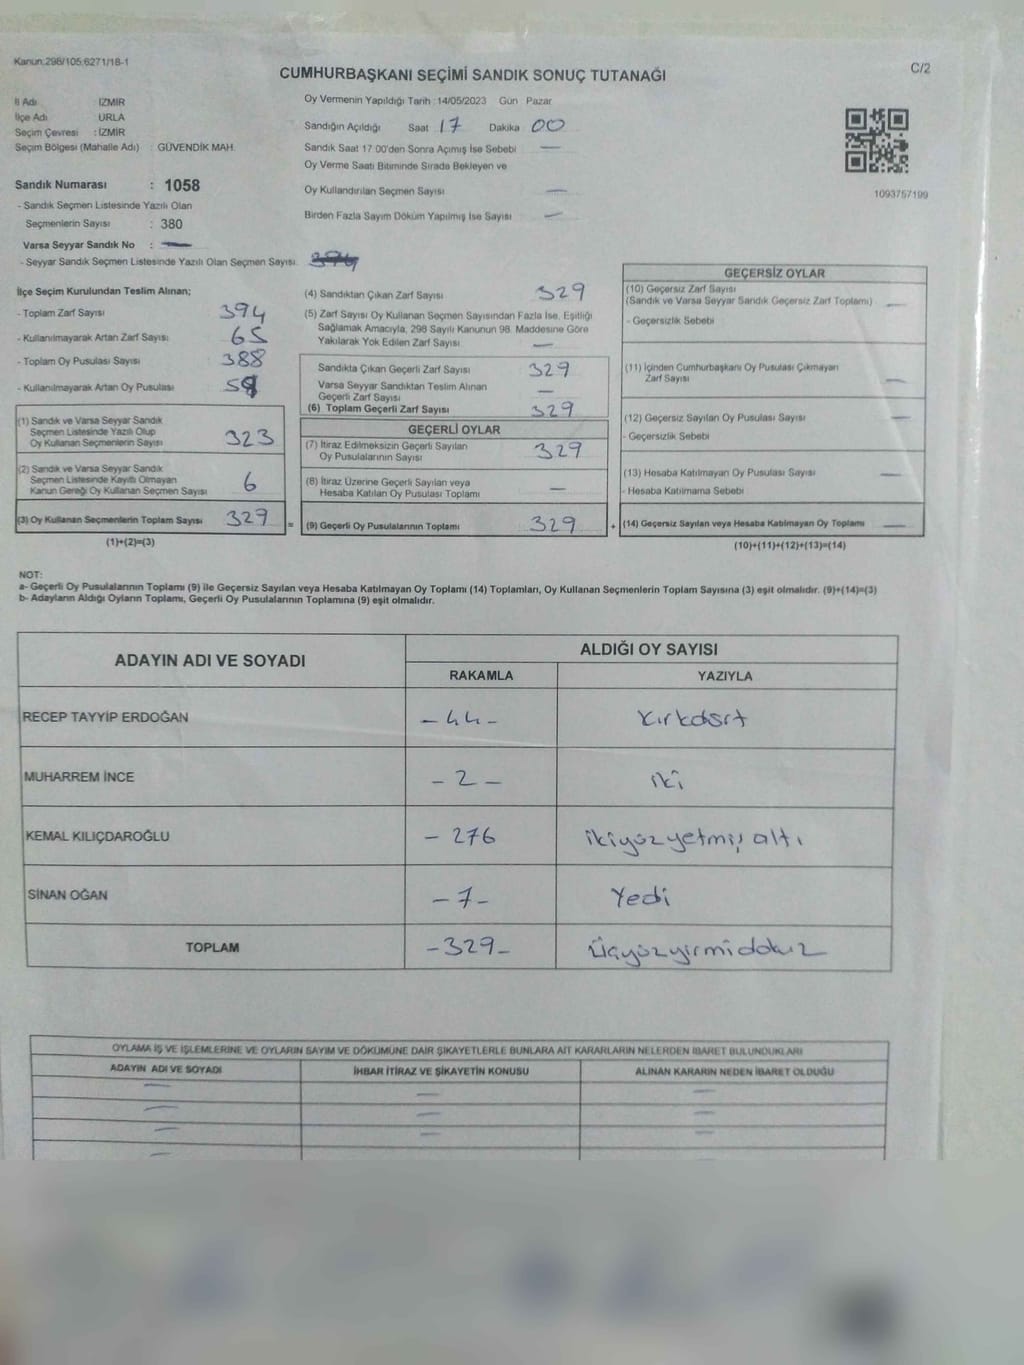 Kanun:298/105,6271/18-1
CUMHURBAŞKANI SEÇİMİ SANDIK SONUÇ TUTANAĞI
C/2
İl Adı İZMİR
İlçe Adı URLA
Seçim Çevresi : İZMİR
Seçim Bölgesi (Mahalle Adı) : GÜVENDİK MAH.
Sandık Numarası : 1058
- Sandık Seçmen Listesinde Yazılı Olan
Seçmenlerin Sayısı : 380
Varsa Seyyar Sandık No : —
- Seyyar Sandık Seçmen Listesinde Yazılı Olan Seçmen Sayısı:
Oy Vermenin Yapıldığı Tarih :14/05/2023 Gün Pazar
Sandığın Açıldığı Saat 17 Dakika 00
Sandık Saat 17:00'den Sonra Açımış İse Sebebi —
Oy Verme Saati Bitiminde Sırada Bekleyen ve
Oy Kullandırılan Seçmen Sayısı —
Birden Fazla Sayım Döküm Yapılmış İse Sayısı —
1093757199
İlçe Seçim Kurulundan Teslim Alınan;
- Toplam Zarf Sayısı 394
- Kullanılmayarak Artan Zarf Sayısı 65
- Toplam Oy Pusulası Sayısı 388
- Kullanılmayarak Artan Oy Pusulası
(1) Sandık ve Varsa Seyyar Sandık
Seçmen Listesinde Yazılı Olup
Oy Kullanan Seçmenlerin Sayısı 323
(2) Sandık ve Varsa Seyyar Sandık
Seçmen Listesinde Kayıtlı Olmayan
Kanun Gereği Oy Kullanan Seçmen Sayısı 6
(3) Oy Kullanan Seçmenlerin Toplam Sayısı 329 =
(1)+(2)=(3)
(4) Sandıktan Çıkan Zarf Sayısı 329
(5) Zarf Sayısı Oy Kullanan Seçmen Sayısından Fazla İse, Eşitliği
Sağlamak Amacıyla, 298 Sayılı Kanunun 98. Maddesine Göre
Yakılarak Yok Edilen Zarf Sayısı —
Sandıkta Çıkan Geçerli Zarf Sayısı 329
Varsa Seyyar Sandıktan Teslim Alınan
Geçerli Zarf Sayısı —
(6) Toplam Geçerli Zarf Sayısı 329
GEÇERLİ OYLAR
(7) İtiraz Edilmeksizin Geçerli Sayılan
Oy Pusulalarının Sayısı 329
(8) İtiraz Üzerine Geçerli Sayılan veya
Hesaba Katılan Oy Pusulası Toplamı —
(9) Geçerli Oy Pusulalarının Toplamı 329 +
GEÇERSİZ OYLAR
(10) Geçersiz Zarf Sayısı
(Sandık ve Varsa Seyyar Sandık Geçersiz Zarf Toplamı) —
- Geçersizlik Sebebi
(11) İçinden Cumhurbaşkanı Oy Pusulası Çıkmayan
Zarf Sayısı —
(12) Geçersiz Sayılan Oy Pusulası Sayısı —
- Geçersizlik Sebebi
(13) Hesaba Katılmayan Oy Pusulası Sayısı —
- Hesaba Katılmama Sebebi
(14) Geçersiz Sayılan veya Hesaba Katılmayan Oy Toplamı —
(10)+(11)+(12)+(13)=(14)
NOT:
a- Geçerli Oy Pusulalarının Toplamı (9) ile Geçersiz Sayılan veya Hesaba Katılmayan Oy Toplamı (14) Toplamları, Oy Kullanan Seçmenlerin Toplam Sayısına (3) eşit olmalıdır. (9)+(14)=(3)
b- Adayların Aldığı Oyların Toplamı, Geçerli Oy Pusulalarının Toplamına (9) eşit olmalıdır.
ADAYIN ADI VE SOYADI
ALDIĞI OY SAYISI
RAKAMLA YAZIYLA
RECEP TAYYİP ERDOĞAN -44- Kırkdört
MUHARREM İNCE -2- iki
KEMAL KILIÇDAROĞLU - 276 ikiyüzyetmiş altı
SİNAN OĞAN -7- Yedi
TOPLAM -329- Üçyüzyirmidokuz
OYLAMA İŞ VE İŞLEMLERİNE VE OYLARIN SAYIM VE DÖKÜMÜNE DAİR ŞİKAYETLERLE BUNLARA AİT KARARLARIN NELERDEN İBARET BULUNDUKLARI
ADAYIN ADI VE SOYADI İHBAR İTİRAZ VE ŞİKAYETİN KONUSU ALINAN KARARIN NEDEN İBARET OLDUĞU
— — —
— — —
— — —